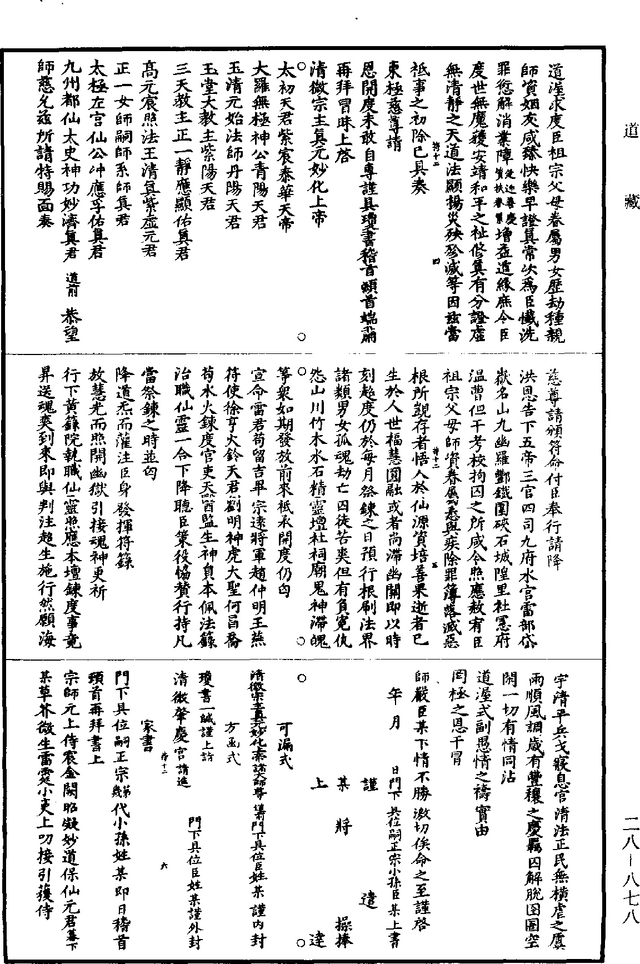 道藏
道澤求度臣祖宗父母眷屬男女歷劫種親
師資姻友咸臻快樂早證真常次為臣懺洗
罪愆解消業障增益道緣庶令臣
度世無魔穫安靖和平之祉脩真有分證虛
無清靜之天道法顯揚災殃殄滅等因玆當
祗事之初除已具奏
東極慈尊請
恩開度未敢自專謹具瓊書稽首頓首端肅
再拜冒昧上啓
清微宗主真元妙化上帝
太初天君紫宸泰華天帝
大羅無極神公青陽天君
玉清元始法師丹陽天君
玉堂大教主紫陽天君
三天教主正一靜應顯佑真君
高元宸照法王清真紫虛元君
正一女師嗣師系師真君
太極左宮仙公冲應孚佑真君
九州都仙太史神功妙濟真君 道前 恭望
師慈允玆所請特賜面奏
慈尊請頒符命付臣奉行請降
洪恩告下五帝三官四司九府水官雷部岱
嶽名山九幽羅酆鐵圍硤石城隍里社冥府
溫曹但干考校拘囚之所咸令照應赦宥臣
祖宗父母師資眷屬
根所觀存者悟人於仙源資培善果逝者已
生於人世福慧圓融或者尚滯幽關即以時
刻超度仍於每月祭鍊之日預行根刷法界
諸類男女孤魂劫亡囚徒苦爽但有負冤仇
怨山川竹木水石精靈壇社祠廟鬼神滯魄
等衆如期發放前來祗承開度仍勾
宣命雷君苟留吉畢宗遠將軍趙仲明王燕
符使徐亨火鈴天君劉明神虎大聖何昌喬
苟水火鍊度官吏天醫監生神員本佩法籙
治職仙靈一合下降聽臣策役協贊行持凡
當祭鍊之時並勾
降道炁而灌注臣身發揮符籙
放慧光而照開幽獄引接魂神更祈
行下黃籙院執職仙靈照應本壇鍊度事竟
昇送魂爽到來即與判注超生施行然願海
宇清平兵戈寢息官清法正民無橫虐之虞
雨順風調歲有豐穰之慶羈囚解脫囹圄空
閑一切有情同沾
道澤式副愚情之禱實由
罔極之恩干冒
師嚴臣某下情不勝激切俟命之至謹啓
年 月 日門下具位嗣正宗小孫臣某上書
謹 遣
某將 操捧
上 達
可漏式
清微宗主真元妙化 門下具位臣姓某謹內封
方函式
瓊書一緘謹上詣
清微肇慶宮請進 門下具位臣姓某謹外封
家書
門下具位嗣正宗第幾代小孫姓某即日稽首
頓首再拜書上
宗師元上侍宸金闕昭凝妙道保仙元君幕下
某草芥微生雷霆小吏上叨接引獲侍
二八—八七八